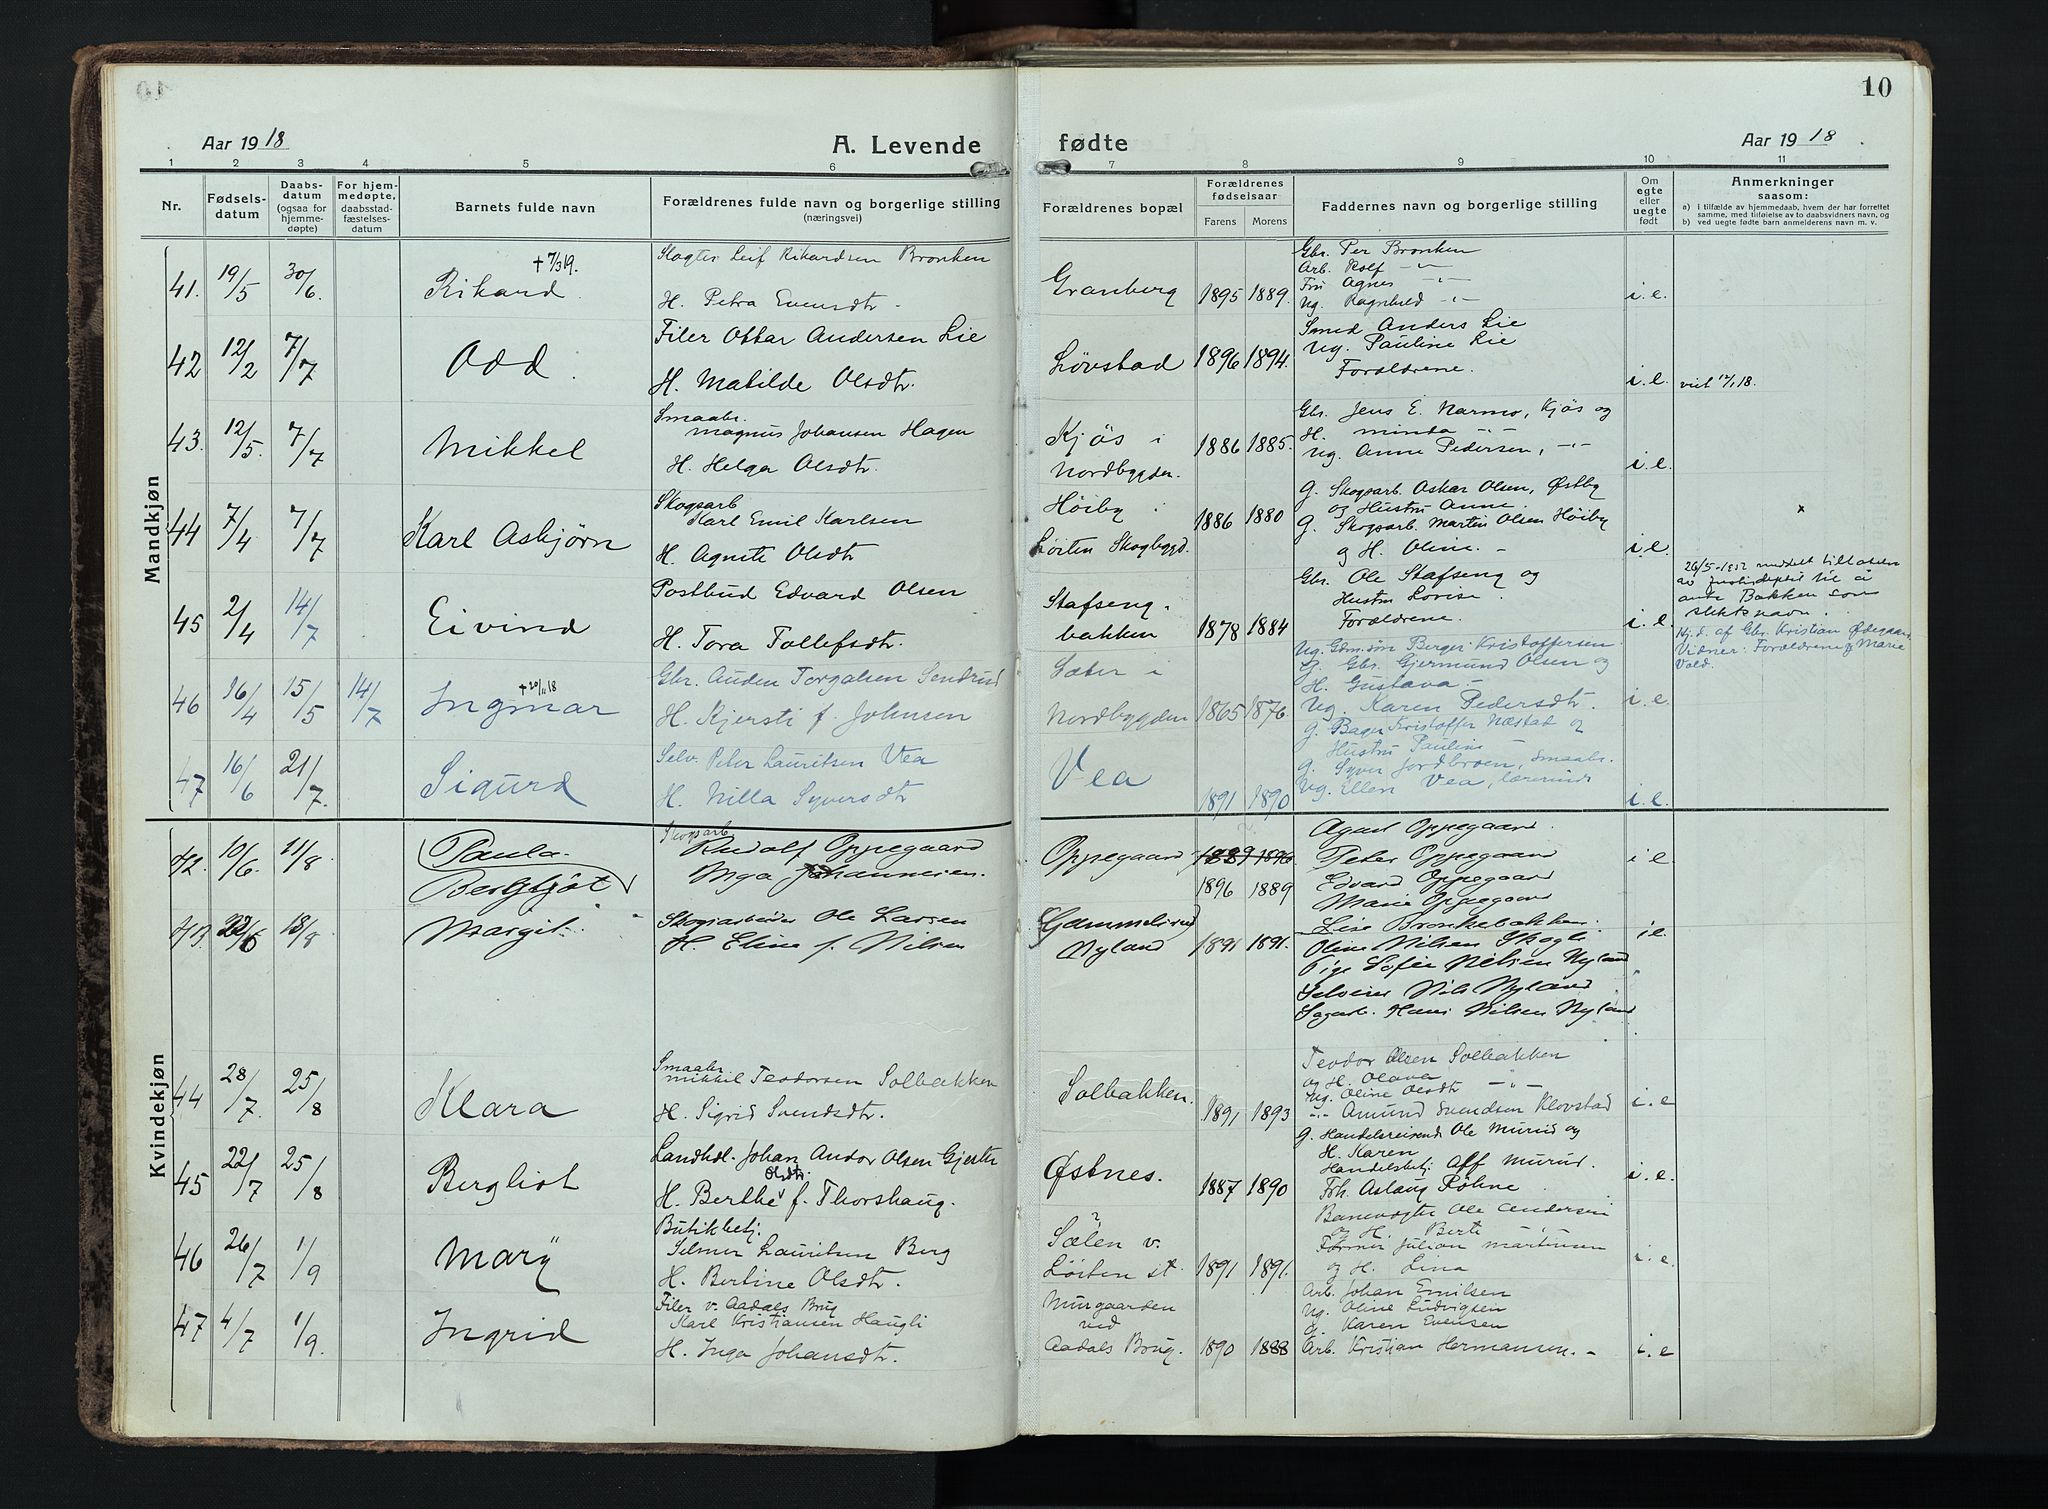 10
Aar 1918
A. Levende fødte
Aar 1918
1 2 3 4 5 6 7 8 9 10 11
Nr.
Fødsels-
datum
Daabs-
datum
(ogsaa for
hjemme-
døpte)
For hjem-
medøpte,
daabsstad-
fæstelses-
datum
Barnets fulde navn
Forældrenes fulde navn og borgerlige stilling
(næringsvei)
Forældrenes bopæl
Forældrenes
fødselsaar
Farens Morens
Faddernes navn og borgerlige stilling
Om
egte
eller
uegte
født
Anmerkninger
saasom:
a) i tilfælde av hjemmedaab, hvem der har forrettet
samme, med tilføielse av to daabsvidners navn, og
b) ved uegte fødte børn anmelderens navn m. v.
Mandkjøn
41. 19/5 30/6. Rikard + 7/3 19.
Slagter Leif Rikardsen Bronken
H. Petra Evensdtr.
Granberg 1895 1889.
Gbr. Per Bronken
Arb. Rolf -"-
Fru Agnes -"-
Ug. Ragnhild -"-
i.e.
42 12/2 7/7 Odd
Filer Ottar Andersen Lie
H. Matilde Olsdtr.
Løvstad 1896 1894.
Smed Anders Lie
Ug. Pauline Lie
Forældrene.
i.e. viet 12/1 18.
43. 12/5. 7/7 Mikkel
Smaabr.
Magnus Johansen Hagen
H. Helga Olsdtr.
Kjøs i
Nordbygden. 1886 1885.
Gbr. Jens E. Narmo, Kjøs og
H. Minda -"-
Ug. Anne Pedersen, -"-
i.e.
44 7/4 7/7 Karl Asbjørn
Skogsarb
Karl Emil Karlsen
H. Agnete Olsdtr
Høiby i
Løiten Skogbygd. 1886 1880
G. Skogsarb. Oskar Olsen, Østby
og Hustru Anne.
G. Skogsarb. Martin Olsen Høiby
og H. Oline. -
i.e. x
45 2/4 14/7 Eivind
Postbud Edvard Olsen
H. Tora Tollefsdtr.
Stafseng-
bakken 1878 1884
Gbr. Ole Stafseng og
Hustru Lovise.
Forældrene.
i.e.
Bakken som
slektsnavn.
46 16/4 15/5 14/7 Ingmar + 20/11 18
Gbr. Auden Torgalsen Sendrud
H. Kjersti f. Johnsen
Sæter i
Nordbygden 1865 1876.
Ug. Gdm.søn Berger Kristoffersen
G. Gbr. Gjermund Olsen og
H. Gustava -
Ug. Karen Pedersdtr.
i.e.
Hj.d. af Gbr. Kristian Ødegaard,
Vidner: Forældrene & Marie
Vold.
47 16/6 21/7. Sigurd
Selv. Peter Lauritsen Vea
H. Nilla Syversdtr
Vea 1891 1890
G. Bager Kristoffer Næstad og
Hustru Pauline -
G. Syver Jordbroen, Smaabr.
Ug. Ellen Vea, lærerinde
i.e.
Kvindekjøn
42. 10/6. 11/8 Paula
Bergljot
Skogsarb
Rudolf Oppegaard
Inga Johannesen.
Oppegaard 1889 1896
1896 1889
Agnes Oppegaard.
Peter Oppegaard
Edvard Oppegaard
Marie Oppegaard
i e
43. 22/6 18/8 Margit.
Skogsarbeider Ole Larsen
H. Eline f. Nilsen
Gammelsrud
Nyland 1891 1891.
Lise Bronkebakken.
Oline Nilsen Skogli
Pige Sofie Nilsen Nyland
Selveier Nils Nyland
Sagarb. Hans Nilsen Nyland
ie.
44 28/7. 25/8 Klara
Smaabr
Mikkil Teodorsen Solbakken
H. Sigrid Svendsdtr.
Solbakken. 1891 1893
Teodor Olsen Solbakken
og H. Olava
Ug. Oline Olsdtr -"-
-"- Amund Svendsen Klovstad
i.e
45 22/7 25/8 Bergliot
Landhdl. Johan Andor Olsen Gjerthe
Olsdtr.
H. Berthe f. Thorshaug.
Østnes. 1887 1890
G. Handelsreisende Ole Murud og
H. Karen
Handelsbetj. Alf Murud.
Frk. Aslaug Røhne.
i.e.
46 26/7 1/9 Mary
Butikbetj.
Selmer Lauritsen Berg
H. Bertine Olsdtr.
?
Sælen v.
Løiten st. 1891 1891.
Banevogter Ole Andersen
og H. Berte
Former Julian Martinsen
og H. Lina
i.e.
47 4/7 1/9. Ingrid
Filer v. Aadals Brug
Karl Kristiansen Haugli
H. Inga Johansdtr.
Murgaarden
ved
Aadals Brug. 1890 1888
Arb. Johan Emilsen
Ug. Oline Ludvigsen
G. Karen Evensen
Arb. Kristian Hermansen. -
i.e